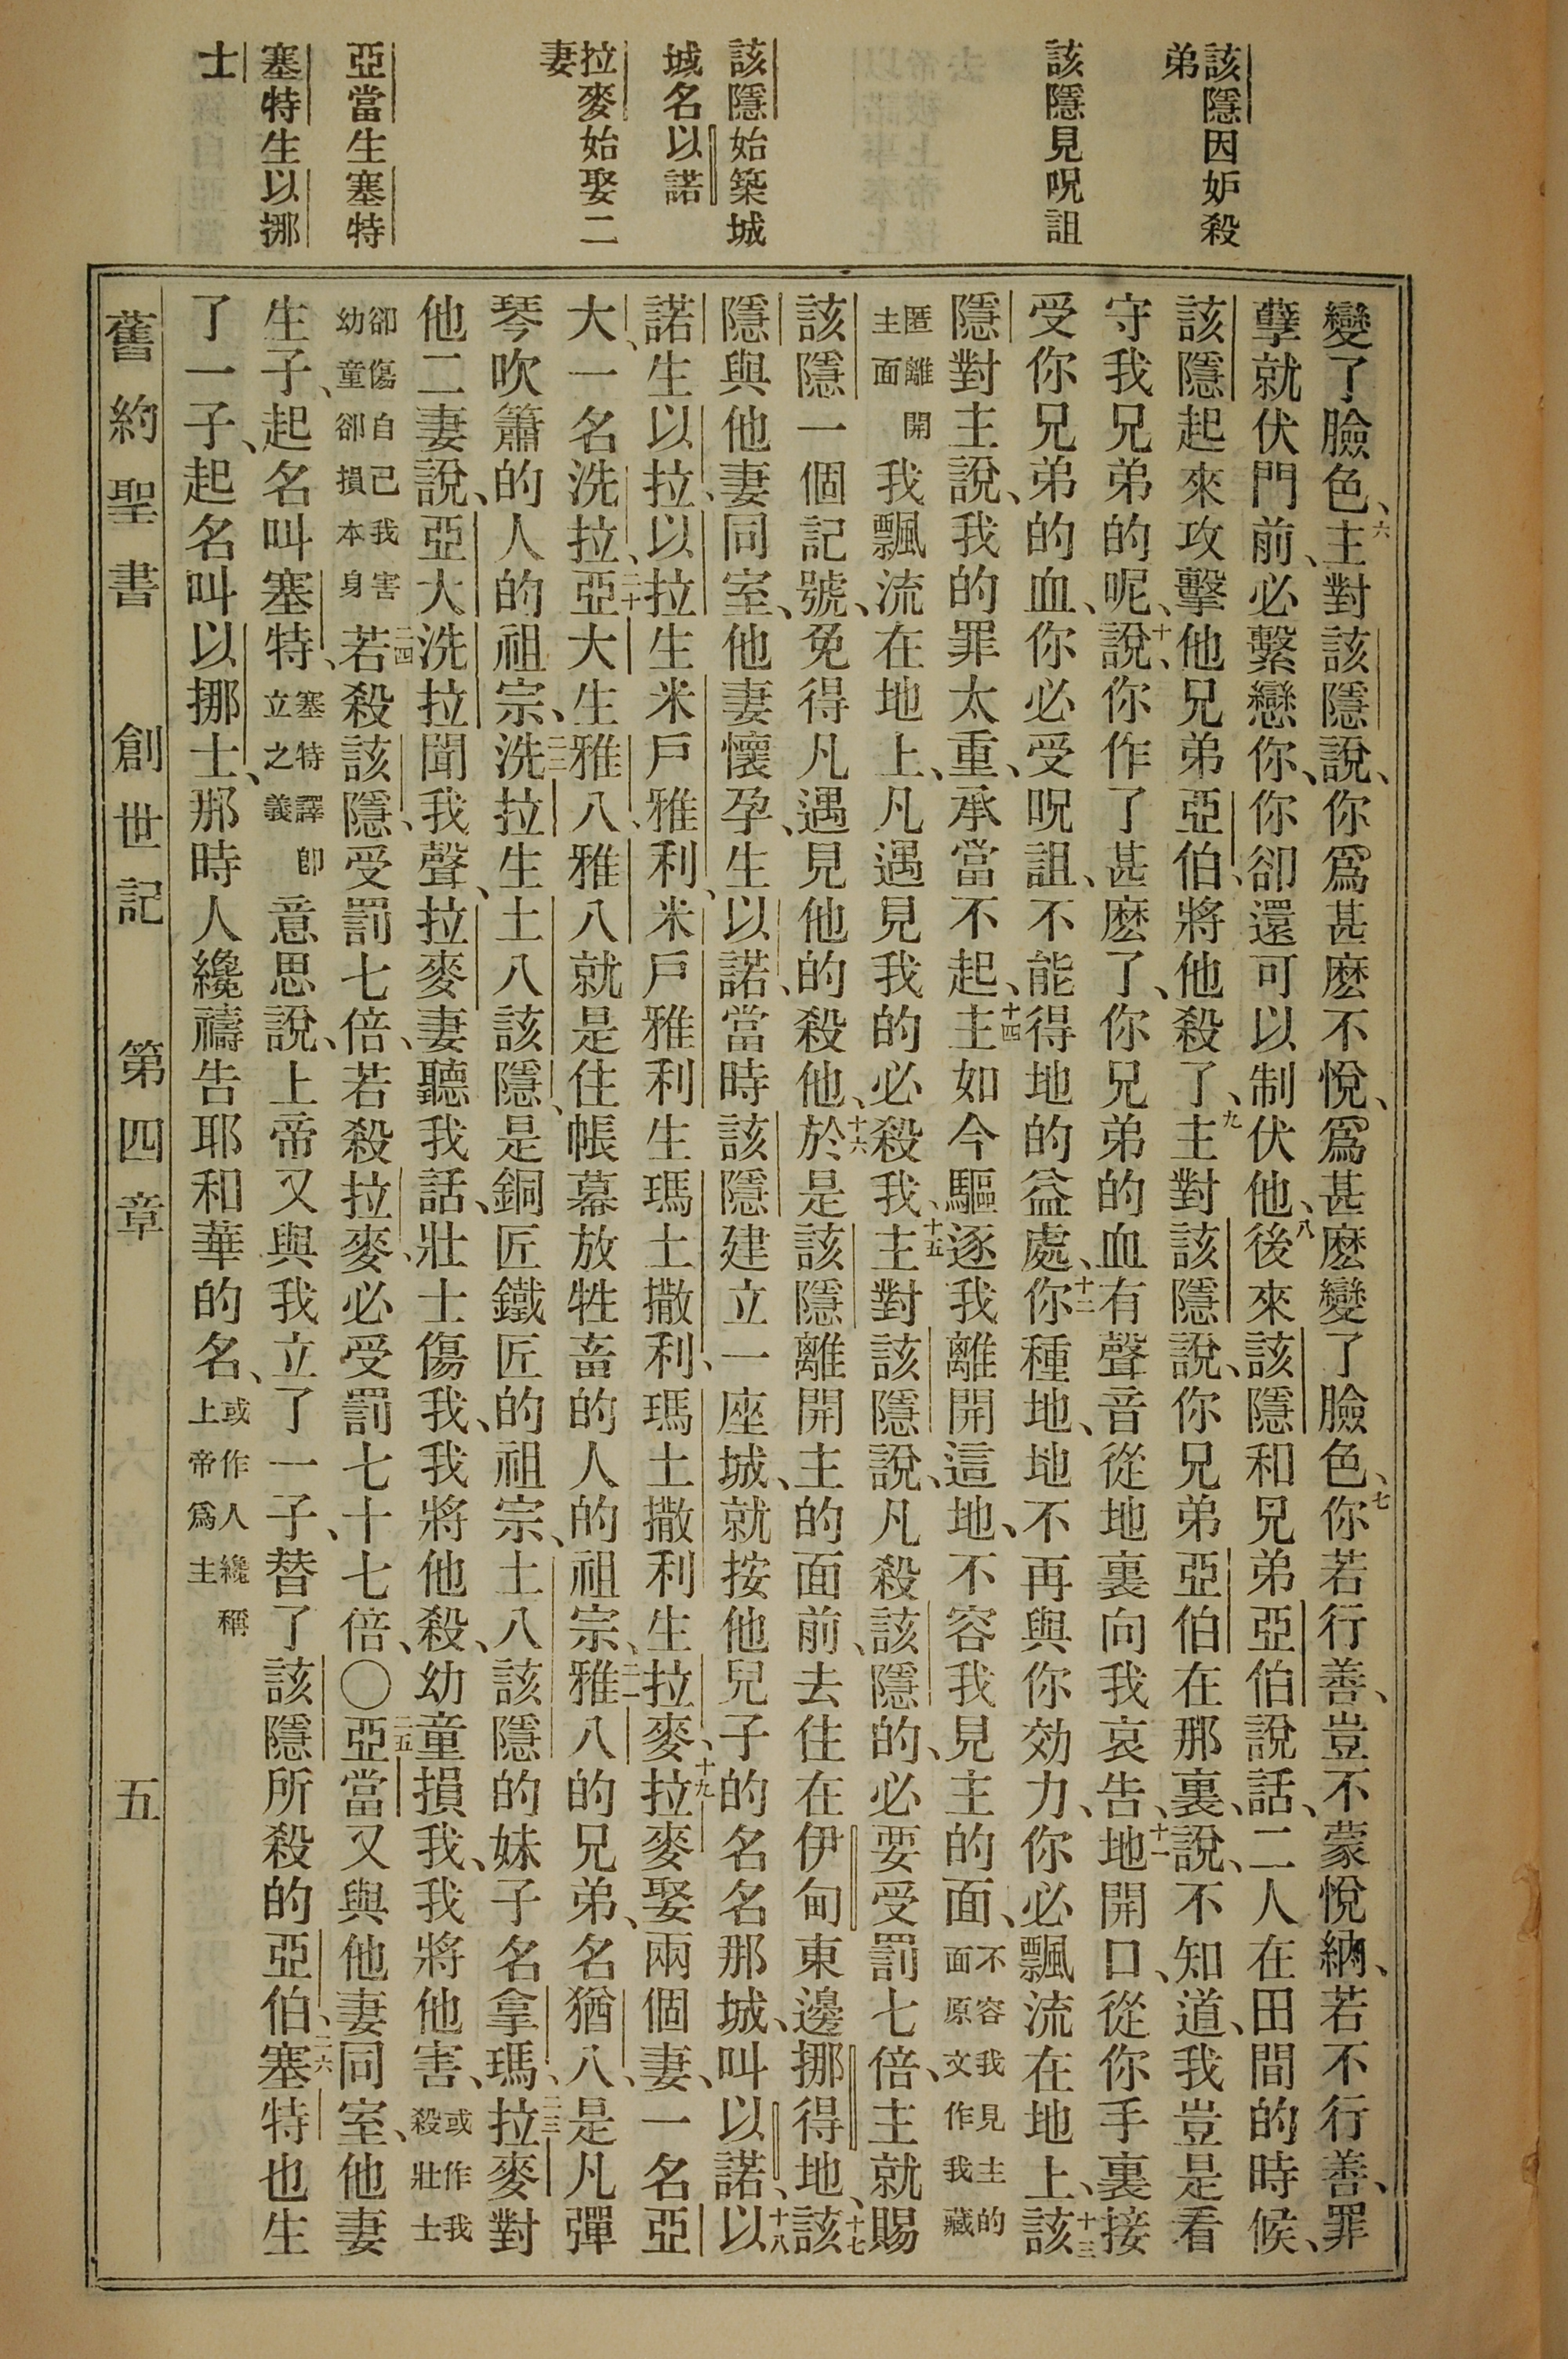 該隱因妒殺
弟
該隱見呪詛
該隱始築城
城名以諾
拉麥始娶二
妻
亞當生塞特
塞特生以挪
士
變了臉色、六主對該隱說、你爲甚麽不悅、爲甚麽變了臉色、七你若行善、豈不蒙悅納、若不行善、罪
孽就伏門前、必繫戀你、你卻還可以制伏他、八後來該隱和兄弟亞伯說話、二人在田間的時候、
該隱起來攻擊他兄弟亞伯、將他殺了、九主對該隱說、你兄弟亞伯在那裏、說、不知道、我豈是看
守我兄弟的呢、十說、你作了甚麽了、你兄弟的血有聲音從地裏向我哀告、十一地開口、從你手裏接
受你兄弟的血、你必受呪詛、不能得地的益處、十二你種地、地不再與你効力、你必飄流在地上、十三該
隱對主說、我的罪太重、承當不起、十四主如今驅逐我離開這地、不容我見主的面、不容我見主的面原文作我藏
匿離開主面我飄流在地上、凡遇見我的必殺我、十五主對該隱說、凡殺該隱的、必要受罰七倍、主就賜
該隱一個記號、免得凡遇見他的殺他、十六於是該隱離開主的面前、去住在伊甸東邊挪得地、十七該
隱與他妻同室、他妻懷孕、生以諾、當時該隱建立一座城、就按他兒子的名名那城、叫以諾、十八以
諾生以拉、以拉生米戶雅利、米戶雅利生瑪土撒利、瑪土撒利生拉麥、十九拉麥娶兩個妻、一名亞
大、一名洗拉、二十亞大生雅八、雅八就是住帳幕放牲畜的人的祖宗、二一雅八的兄弟、名猶八、是凡彈
琴吹簫的人的祖宗、二二洗拉生土八該隱、是銅匠鐵匠的祖宗、土八該隱的妹子名拿瑪、二三拉麥對
他二妻說、亞大洗拉聞我聲、拉麥妻聽我話、壯士傷我、我將他殺、幼童損我、我將他害、或作我殺壯士
卻傷自己我害幼童卻損本身二四若殺該隱、受罰七倍、若殺拉麥、必受罰七十七倍、〇二五亞當又與他妻同室、他妻
生子、起名叫塞特、塞特譯卽立之義意思說、上帝又與我立了一子、替了該隱所殺的亞伯、二六塞特也生
了一子、起名叫以挪士、那時人纔禱告耶和華的名、或作人纔稱上帝爲主
舊約聖書 創世記 第四章 五